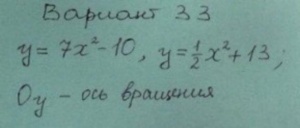 Вариант 33
y = 7x² - 10, y = ½x² + 13;
Oy - ось вращения